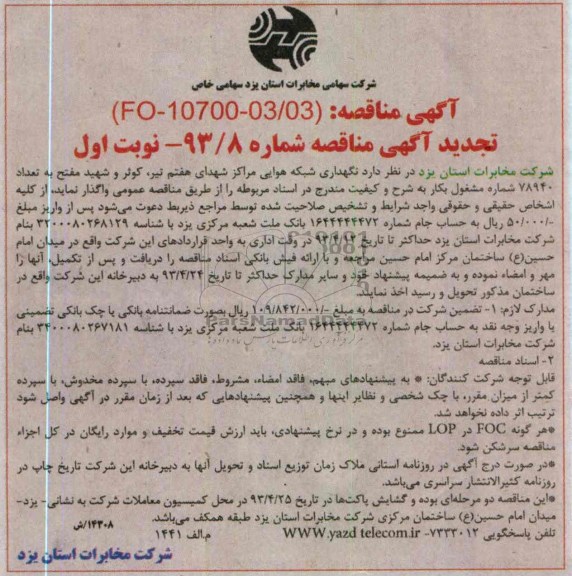 شرکت سهامی مخابرات استان یزد سهامی خاص
آگهی مناقصه: (FO-10700-03/03)
تجدید آگهی مناقصه شماره ۹۳/۸- نوبت اول
شرکت مخابرات استان یزد در نظر دارد نگهداری شبکه هوایی مراکز شهدای هفتم تیر، کوثر و شهید مفتح به تعداد
۷۸۹۴۰ شماره مشغول بکار به شرح و کیفیت مندرج در اسناد مربوطه را از طریق مناقصه عمومی واگذار نماید، از کلیه
اشخاص حقیقی و حقوقی واجد شرایط و تشخیص صلاحیت شده توسط مراجع ذیربط دعوت می‌شود پس از واریز مبلغ
۵۰/۰۰۰/- ریال به حساب جام شماره ۱۶۴۴۴۴۴۴۷۲ بانک ملت شعبه مرکزی یزد با شناسه ۳۲۰۰۰۸۰۲۶۸۱۲۹ بنام
شرکت مخابرات استان یزد حداکثر تا تاریخ در وقت اداری به واحد قراردادهای این شرکت واقع در میدان امام
حسین(ع) ساختمان مرکز امام حسین مراجعه و با ارائه فیش بانکی اسناد مناقصه را دریافت و پس از تکمیل، آنها را
مهر و امضاء نموده و به ضمیمه پیشنهاد خود و سایر مدارک حداکثر تا تاریخ ۹۳/۴/۲۴ به دبیرخانه این شرکت واقع در
ساختمان مذکور تحویل و رسید اخذ نمایند.
مدارک لازم: ۱- تضمین شرکت در مناقصه به مبلغ ۱۰۹/۸۴۲/۰۰۰/- ریال بصورت ضمانتنامه بانکی یا چک بانکی تضمینی
یا واریز وجه نقد به حساب جام شماره ۱۶۴۴۴۴۴۴۷۲ بانک ملت شعبه مرکزی یزد با شناسه ۳۴۰۰۰۸۰۲۶۷۱۸۱ بنام
شرکت مخابرات استان یزد.
۲- اسناد مناقصه
قابل توجه شرکت کنندگان: * به پیشنهادهای مبهم، فاقد امضاء، مشروط، فاقد سپرده، با سپرده مخدوش، با سپرده
کمتر از میزان مقرر، با چک شخصی و نظایر اینها و همچنین پیشنهادهایی که بعد از زمان مقرر در آگهی واصل شود
ترتیب اثر داده نخواهد شد.
*هر گونه FOC در LOP ممنوع بوده و در نرخ پیشنهادی، باید ارزش قیمت تخفیف و موارد رایگان در کل اجزاء
مناقصه سرشکن شود.
*در صورت درج آگهی در روزنامه استانی ملاک زمان توزیع اسناد و تحویل آنها به دبیرخانه این شرکت تاریخ چاپ در
روزنامه کثیرالانتشار سراسری می‌باشد.
*این مناقصه دو مرحله‌ای بوده و گشایش پاکت‌ها در تاریخ ۹۳/۴/۲۵ در محل کمیسیون معاملات شرکت به نشانی- یزد-
میدان امام حسین(ع) ساختمان مرکزی شرکت مخابرات استان یزد طبقه همکف می‌باشد.
تلفن پاسخگویی ۷۳۳۳۰۱۲- WWW.yazd telecom.ir
۱۴۳۰۸/ش
م.الف ۱۴۴۱
شرکت مخابرات استان یزد